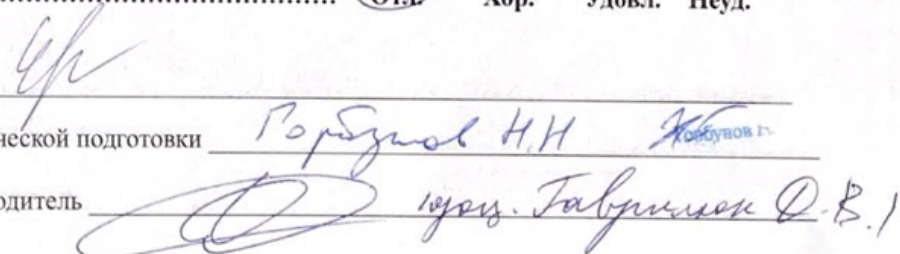 Отл. Хор. Удовл. Неуд.
ческой подготовки Горбунов Н.Н Горбунов
одитель доц. Гаврилюк Д.В.